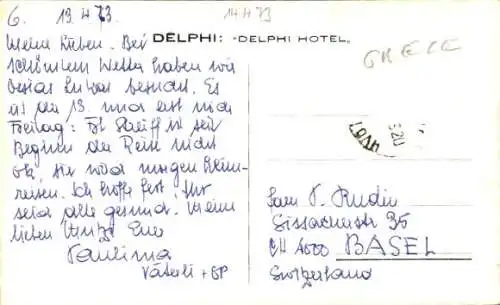 6. 13.4.73
14 4 73
DELPHI: -DELPHI HOTEL.
GRECE
Meine Lieben. Bei
schönstem Wetter haben wir
besucht. Es
ist der 13. und erst noch
Freitag: Frl. Streiff ist seit
Beginn der Reise nicht
ok. Sie wird morgen heim-
reisen. Ich hoffe fest, Ihr
seid alle gesund. Meine
lieben Eure
Paulima
Väterli + GP
Fam P. Rudin
Sissacherstr 35
CH 4000 BASEL
Switzerland